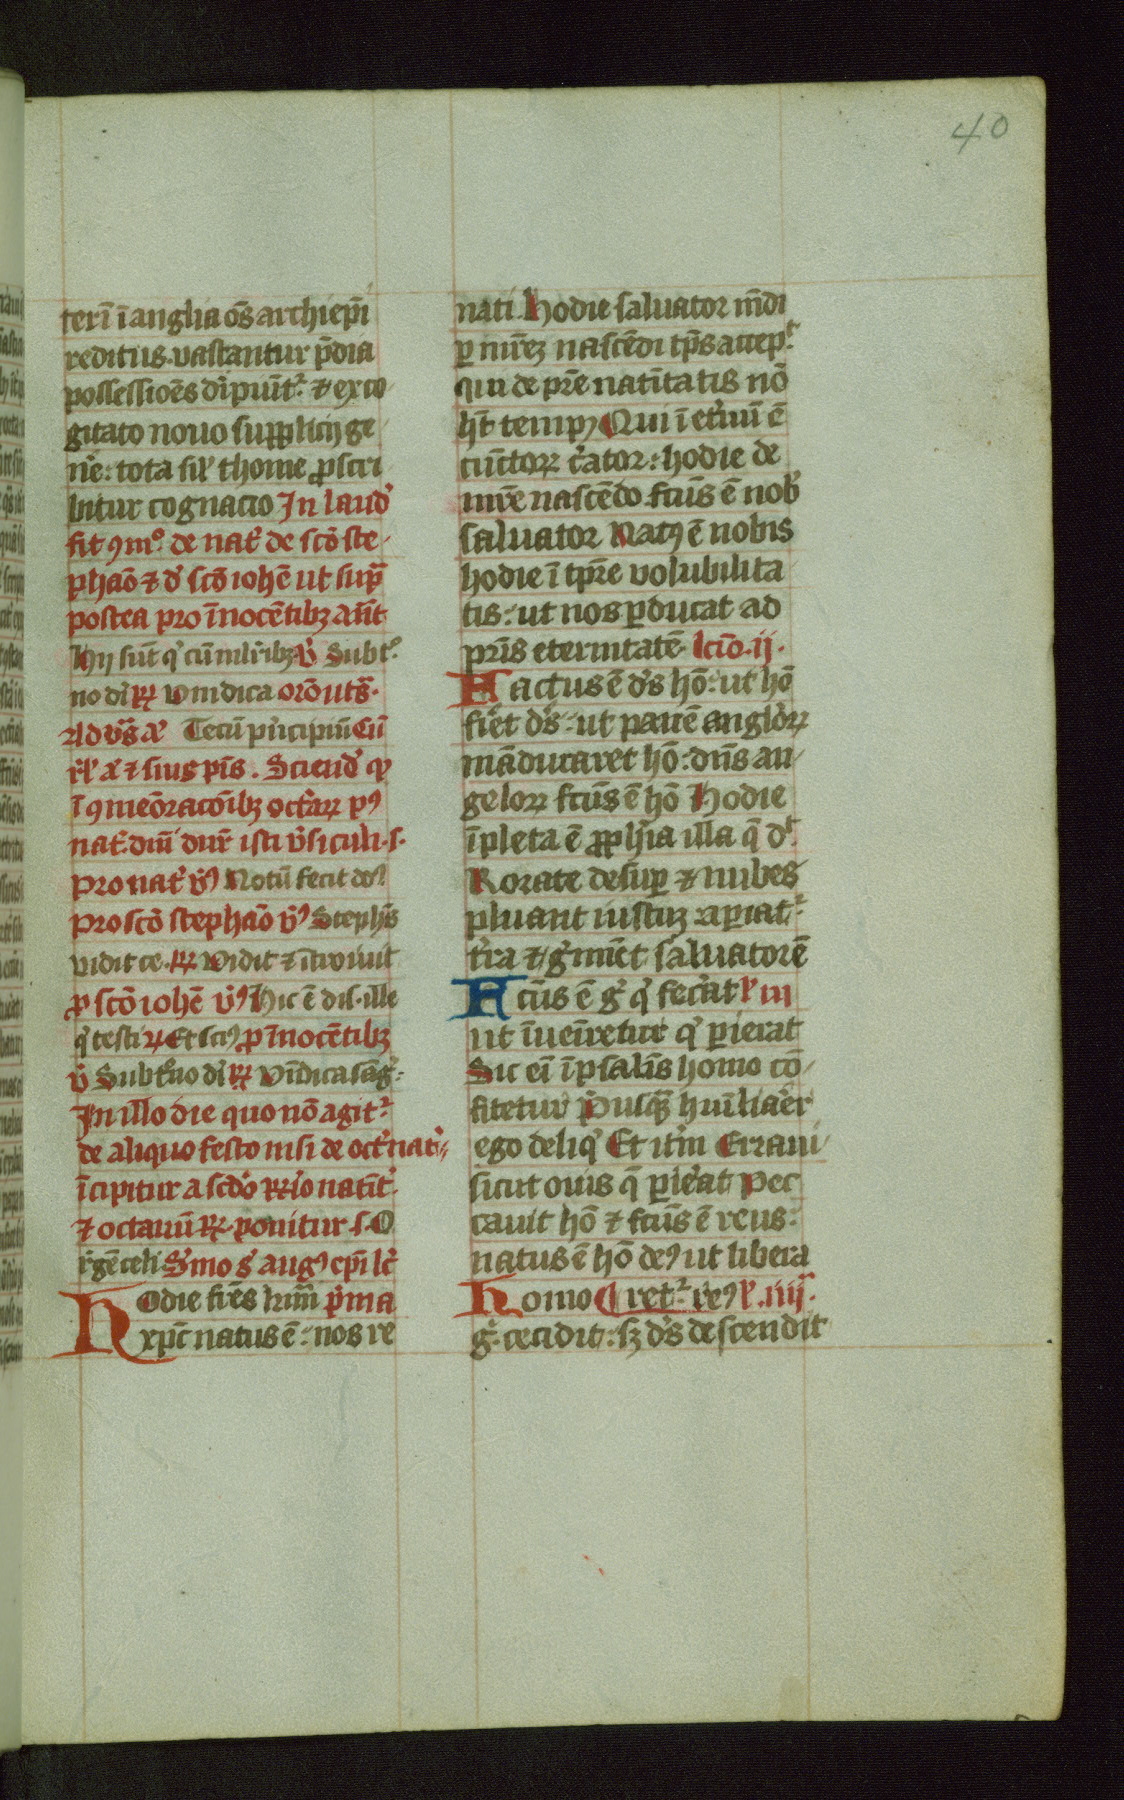 40
terī ī anglia ōs archiep̄i
reditus. vastantur p̄dia
possessiōes dīpiūt᷑. ⁊ exco
gitato nouo supplicij ge
n̄e: tota sil᷑ thome ꝓscri
bitur cognacio In laud᷑
fit ꝯmº de nat᷑ de scō ste
phāo ⁊ d᷑ scō iohē ut sup̄
postea pro īnocētibꝫ añt
Hij sūt q᷑ cū mlr̄ibꝫ v᷑ Subtº
no dī℞ Vindica orō uts᷑.
Ad v̄s a᷑ Tecū pricipiū Cū
r̄l᷑ a᷑ ⁊ sing̕ p̄is. Sciend᷑ ꝙ
ī ꝯmeōracōibꝫ octaꝝ pꝰ
nat᷑. dn̄i dn̄r isti v̄siculi .s.
pro nat᷑ v᷑ Notū fecit dꝰ
pro scō stephāo v᷑ Stephs̄
vidit ce. ℞ Vidit ⁊ ītroiuit
ꝓ scō iohē v᷑ Hic ē dis. ille
q᷑ testi ℞ Et sciꝰ ꝓ īnocētibꝫ
v᷑ Subt᷑no dī ℞ Vīdica sāg᷑:
In illo die quo nō agit᷑
de aliquo festo nisi de oct᷑ nat᷑
īcipitur a scd̄o ℞rio natīt᷑.
⁊ octauū ℞ ponitur .s. O
r̄gē celi S᷑mo s᷑ augꝰ ep̄i lc᷑
Hodie fr̄es kr̄mi p̄ma
xp̄c natus ē: nos re
nati. Hodie saluator m̄di
ꝑ mr̄eꝫ nascēdi tp̄s accep᷑t
qui de p̄re natītatis nō
h̄t tempꝰ Qui ī et᷑nū ē
cūctoꝝ c᷑ator: hodie de
mr̄e nascēdo fcūs ē nob᷑
saluator Natꝰ ē nobis
hodie ī tp̄re volubilita
tis: ut nos ꝑducat ad
p̄ris eternitatē. lcīo .ii.
Factus ē d̄s hō: ut hō
fi᷑et d̄s: ut panē angloꝝ
māducaret hō: dn̄s an
geloꝝ fcūs ē hō Hodie
īpleta ē ꝓph̄ia illa q̄ d᷑t
Rorate desup̄ ⁊ nubes
pluant iustuꝫ aꝑiat᷑
t᷑ra ⁊ g᷑minet saluatorē
Fcūs ē g᷑ q᷑ fec᷑at l᷑ iii
ut īuenīretur q᷑ perierat
Sic ei ī psalīs homo cō
fitetur Pusꝗ̄ humiliaēr
ego deliq᷑ Et it᷑m Erraui
sicut ouis q̄ ꝑie᷑at Pec
cauit hō ⁊ fcūs ē reus:
natus ē hō deꝰ ut libera
Homo ret᷑ reꝰ l᷑ .iiij.
g᷑. cecidit: sꝫ d̄s descendit